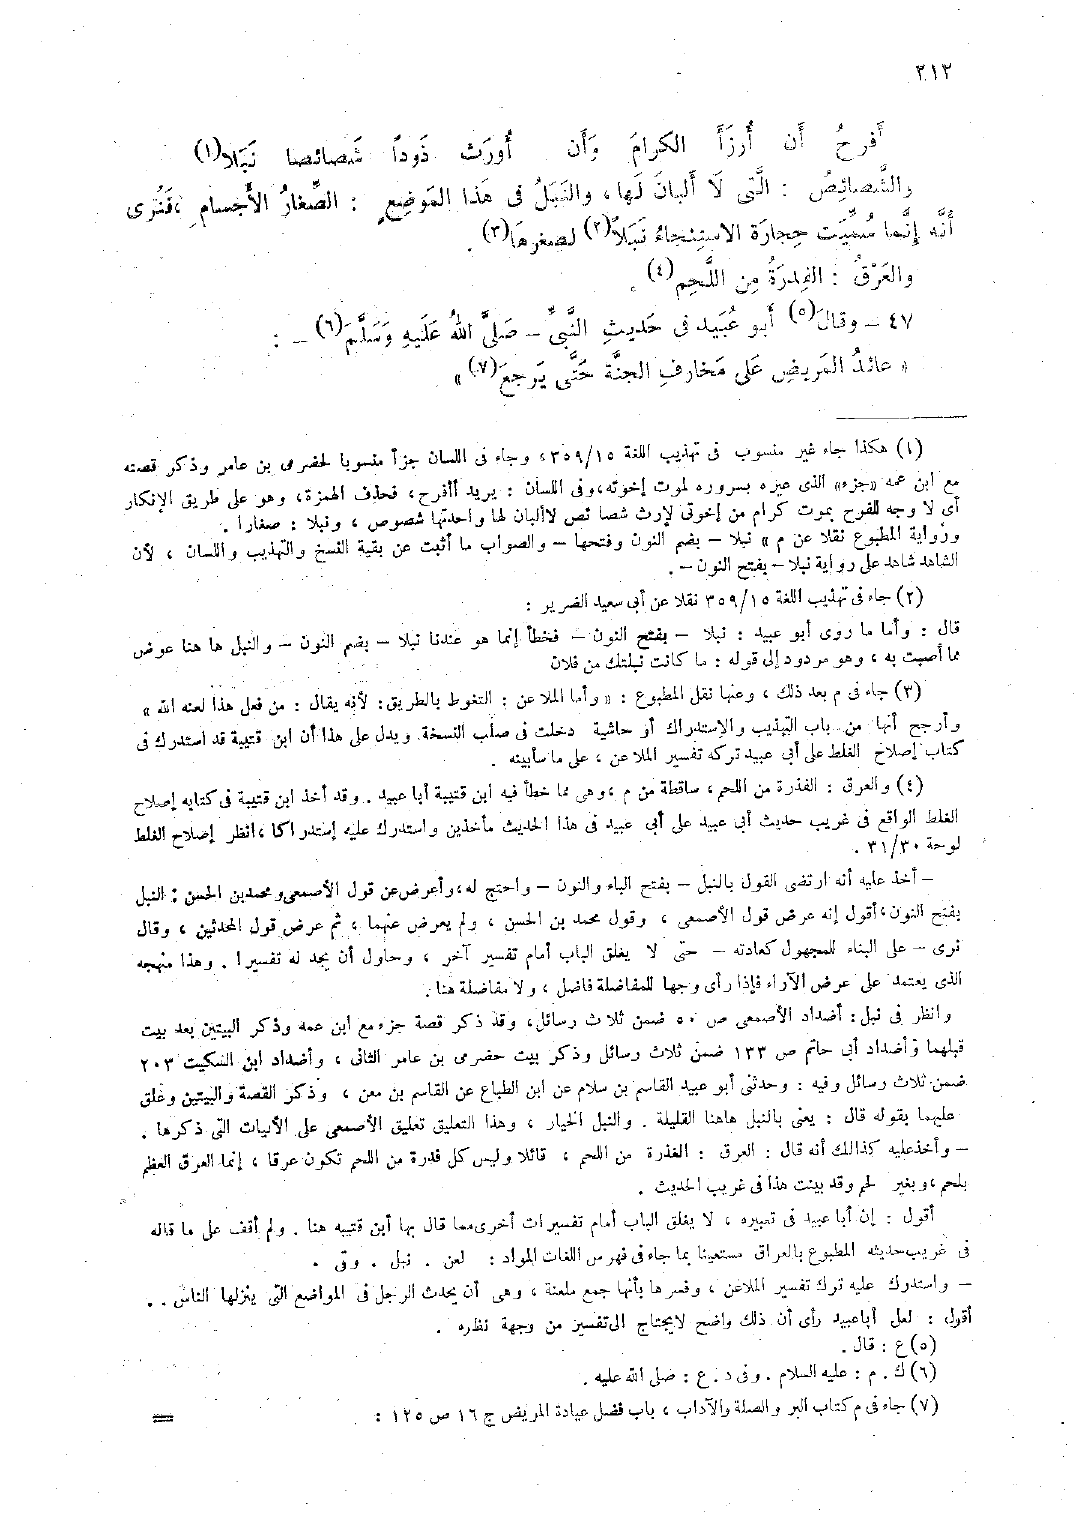 ٢١٢
أَفرحُ أَن أُرزَأَ الكرامَ وَأَن أُورَث ذَوداً شَصائصا نَبَلا(١)
والشَّصائِصُ : الَّتى لَا أَلبانَ لَها ، والنَبَلُ فى هَذا المَوضِعِ : الصِّغارُ الأَجسامِ ، فَنُرى
أَنَّه إِنَّما سُمِّيَت حِجارَة الاستِنجاءُ نَبَلاً(٢) لصغرهَا(٣) .
والعَرْقُ : الفِدرَةُ مِن اللَّحمِ(٤) .
٤٧ – وقالَ(٥) أَبو عُبَيد فى حَديثِ النَّبىِّ – صَلىَّ اللهُ عَلَيهِ وَسَلَّمَ(٦) – :
« عائدُ المَريضِ عَلى مَخارفِ الجنَّة حَتَّى يَرجعَ(٧) »
(١) هكذا جاء غير منسوب فى تهذيب اللغة ٣٥٩/١٥ ، وجاء فى اللسان جزأ منسوبا لحضرمى بن عامر وذكر قصته
مع ابن عمه «جزء» الذى عيره بسروره لموت إخوته ، وفى اللسان : يريد أأفرح ، فحذف الهمزة ، وهو على طريق الإنكار
أى لا وجه للفرح بموت كرام من إخوتى لإرث شصا ئص لاألبان لها واحدتها شصوص ، ونبلا : صغارا .
ورواية المطبوع نقلا عن م « نبلا – بضم النون وفتحها – والصواب ما أثبت عن بقية النسخ والتهذيب واللسان ، لأن
الشاهد شاهد على رواية نبلا – بفتح النون – .
(٢) جاء فى تهذيب اللغة ٣٥٩/١٥ نقلا عن أبى سعيد الضرير :
قال : وأما ما روى أبو عبيد : نبلا – بفتح النون – فخطأ إنما هو عندنا نبلا – بضم النون – والنبل ها هنا عوض
مما أصبت به ، وهو مردود إلى قوله : ما كانت نبلتك من فلان
(٣) جاء فى م بعد ذلك ، وعنها نقل المطبوع : « وأما الملا عن : التغوط بالطريق : لأنه يقال : من فعل هذا لعنه الله »
وأرجح أنها من باب التهذيب والإستدراك أو حاشية دخلت فى صلب النسخة ويدل على هذا أن ابن قتيبة قد استدرك فى
كتاب إصلاح الغلط على أبى عبيد تركه تفسير الملا عن ، على ما سأبينه .
(٤) والعرق : الفذرة من اللحم ، ساقطة من م ، وهى مما خطأ فيه ابن قتيبة أبا عبيد . وقد أخذ ابن قتيبة فى كتابه إصلاح
الغلط الواقع فى غريب حديث أبى عبيد على أبى عبيد فى هذا الحديث مأخذين واستدرك عليه إستدراكا ، انظر إصلاح الغلط
لوحة ٣١/٣٠ .
– أخذ عليه أنه ارتضى القول بالنبل – بفتح الباء والنون – واحتج له ، وأعرض عن قول الأصمعى ومحمد بن الحسن : النبل
بفتح النون ؛ أقول إنه عرض قول الأصمعى ، وقول محمد بن الحسن ، ولم يعرض عنهما ، ثم عرض قول المحدثين ، وقال
نرى – على البناء للمجهول كعادته – حتى لا يغلق الباب أمام تفسير آخر ، وحاول أن يجد له تفسيرا . وهذا منهجه
الذى يعتمد على عرض الآراء فإذا رأى وجها للمفاضلة فاضل ، ولا مفاضلة هنا .
وانظر فى نبل : أضداد الأصمعى ص ٥٠ ضمن ثلاث رسائل ، وقد ذكر قصة جزء مع ابن عمه وذكر البيتين بعد بيت
قبلهما وأضداد أبى حاتم ص ١٣٣ ضمن ثلاث رسائل وذكر بيت حضرمى بن عامر الثانى ، وأضداد ابن السكيت ٢٠٣
ضمن ثلاث رسائل وفيه : وحدثنى أبو عبيد القاسم بن سلام عن ابن الطباع عن القاسم بن معن ، وذكر القصة والبيتين وعلق
عليهما بقوله قال : يعنى بالنبل هاهنا القليلة . والنبل الخيار ، وهذا التعليق تعليق الأصمعى على الأبيات التى ذكرها .
– وأخذ عليه كذالك أنه قال : العرق : الفذرة من اللحم ، قائلا وليس كل فدرة من اللحم تكون عرقا ، إنما العرق العظم
بلحم ، وبغير لحم وقد بينت هذا فى غريب الحديث .
أقول : إن أبا عبيد فى تعبيره ، لا يغلق الباب أمام تفسيرات أخرى مما قال بها أبن قتيبه هنا . ولم أقف على ما قاله
فى غريب حديثه المطبوع بالعراق مستعينا بما جاء فى فهرس اللغات المواد : لعن . نبل . وفى .
– واستدرك عليه ترك تفسير الملاعن ، وفسرها بأنها جمع ملعنة ، وهى أن يحدث الرجل فى المواضع التى ينزلها الناس . .
أقول : لعل أباعبيد رأى أن ذلك واضح لايحتاج الى تفسير من وجهة نظره .
(٥) ع : قال .
(٦) ك . م : عليه السلام . وفى د . ع : صلى الله عليه .
(٧) جاء فى م كتاب البر والصلة والآداب ، باب فضل عيادة المريض ج ١٦ ص ١٢٥ :
=